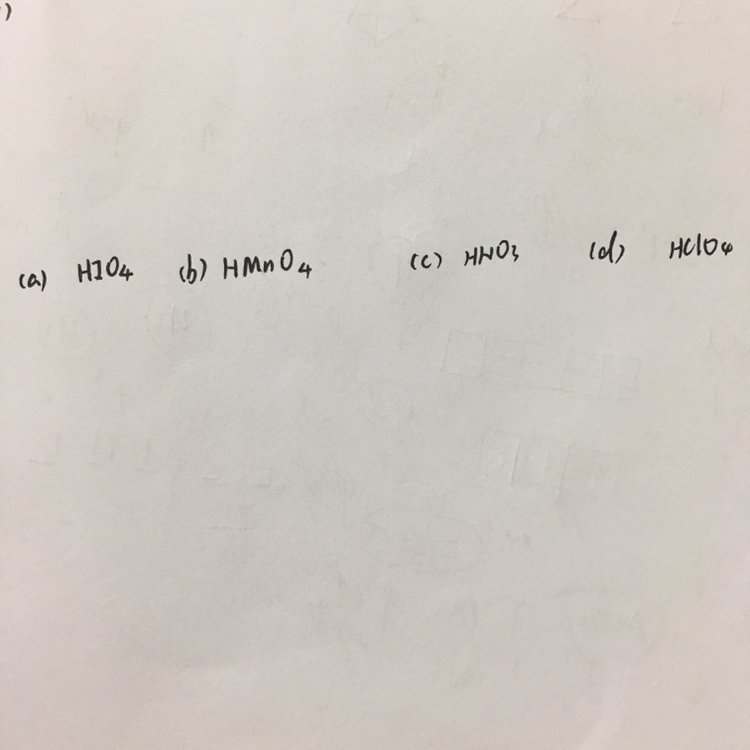 )
(a) HIO4 (b) HMnO4 (c) HNO3 (d) HClO4